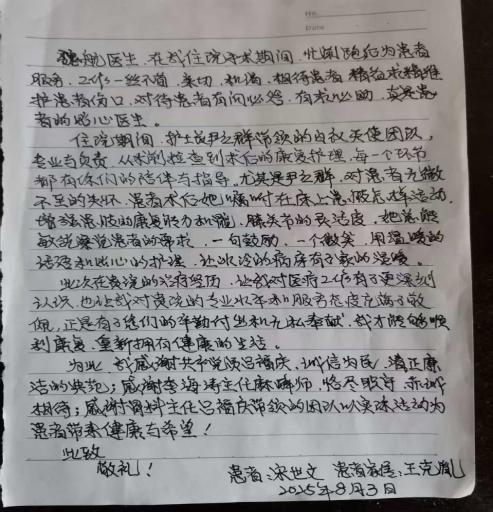 No.
Date
航医生,在我住院手术期间,忙前跑后为患者
服务,工作一丝不苟,亲切、和蔼,相待患者精益求精维
护患者伤口,对待患者有问必答,有求必助,真是患
者的贴心医生。
住院期间,护士长尹之群带领的白衣天使团队,
专业与负责,从术前检查到术后的康复护理,每一个环节
都有你们的陪伴与指导。尤其是尹之群,对患者无微
不至的关怀,患者术后她嘱咐在床上患肢怎样运动,
增强患肢的康复肌力和髋、膝关节的灵活度,她总能
敏锐察觉患者的需求,一句鼓励,一个微笑,用温暖的
话语和贴心的护理,让冰冷的病房有了家的温暖。
此次在贵院的治疗经历,让我对医疗工作有了更深刻
认识,也让我对贵院的专业水平和服务态度充满了敬
佩,正是有了您们的辛勤付出和无私奉献,我才能够顺
利康复,重新拥有健康的生活。
为此,我感谢共产党员吕福庆,诚信为民,清正廉
洁的典范;感谢李海涛主任麻醉师,恪尽职守,赤诚
相待;感谢骨科主任吕福庆带领的团队以实际活动为
患者带来健康与希望!
此致
敬礼!
患者:宋世文 患者家属:王克胤
2025年8月3日